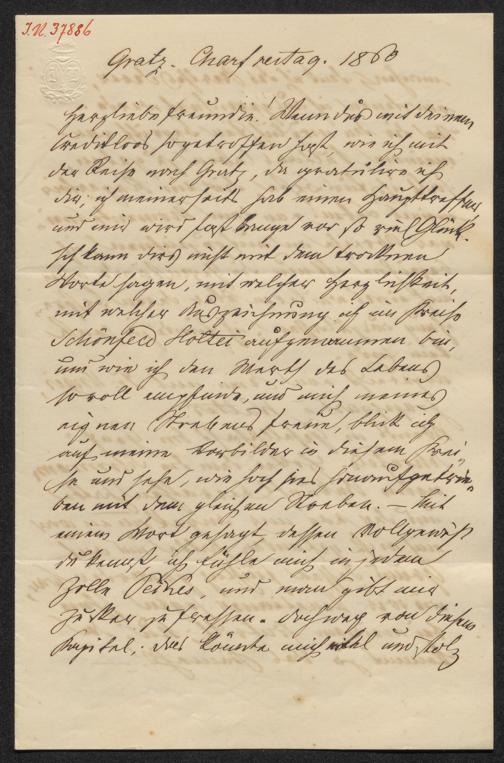 I.N. 37886
Gratz. Charfreitag. 1860
Herzliebe Freundin! Wenn du's mit deinem
Creditloos so getroffen hast, wie ich mit
der Reise nach Gratz, da gratulire ich
dir; ich meinerseits hab einen Haupttreffer
und mir wird fast bange vor so viel Glück.
Ich kann dir's nicht mit dem trocknen
Worte sagen, mit welcher Herzlichkeit,
mit welcher Auszeichnung ich im Kreise
Schönfeld Holtei aufgenommen bin,
und wie ich den Werth des Lebens
so voll empfinde, und mich meines
eignen Strebens freue, blick ich
auf meine Vorbilder in diesem Krei-
se und sehe, wie hoch sie's hinaufgetrie-
ben mit dem gleichen Streben. – Mit
einem Wort gesagt, dessen Vollgewicht
du kennst, ich fühle mich in jedem
Zolle, und man gibt mir
Zucker zu fressen. Doch weg von diesem
Kapitel, das könnte mich eitel und stolz